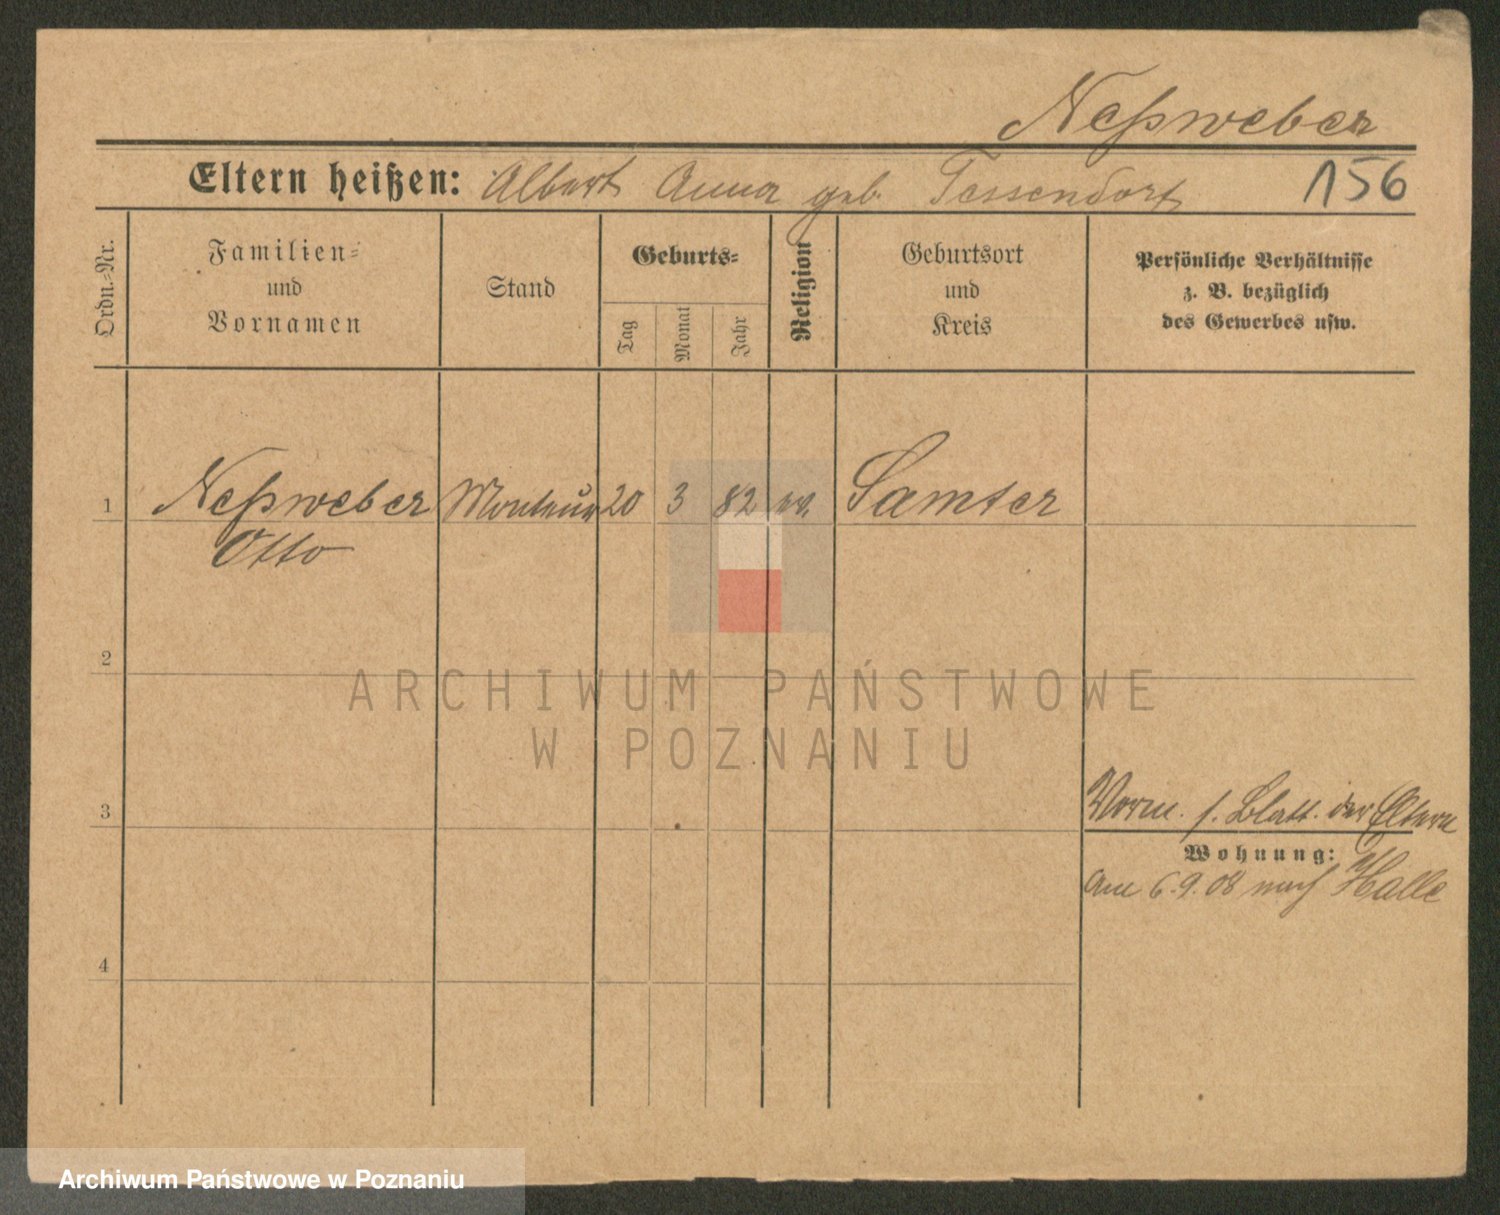 Neßweber
Eltern heißen: Albert Anna geb. Tessendorf 156
Ordn.-Nr.
Familien-
und
Vornamen
Stand
Geburts-
Tag
Monat
Jahr
Religion
Geburtsort
und
Kreis
Persönliche Verhältnisse
z. B. bezüglich
des Gewerbes usw.
1 Neßweber Monteur 20 3 82 ev. Samter
Otto
2
ARCHIWUM PAŃSTWOWE
W POZNANIU
3 Vorm. s. Blatt. der Eltern
Wohnung:
Am 6.9.08 nach Halle
4
Archiwum Państwowe w Poznaniu